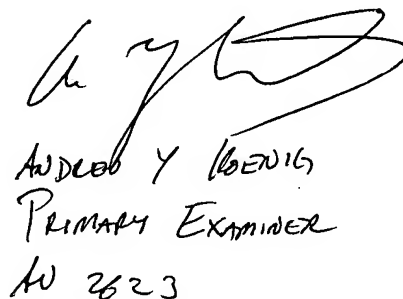 ANDREW Y KOENIG
PRIMARY EXAMINER
AU 2623